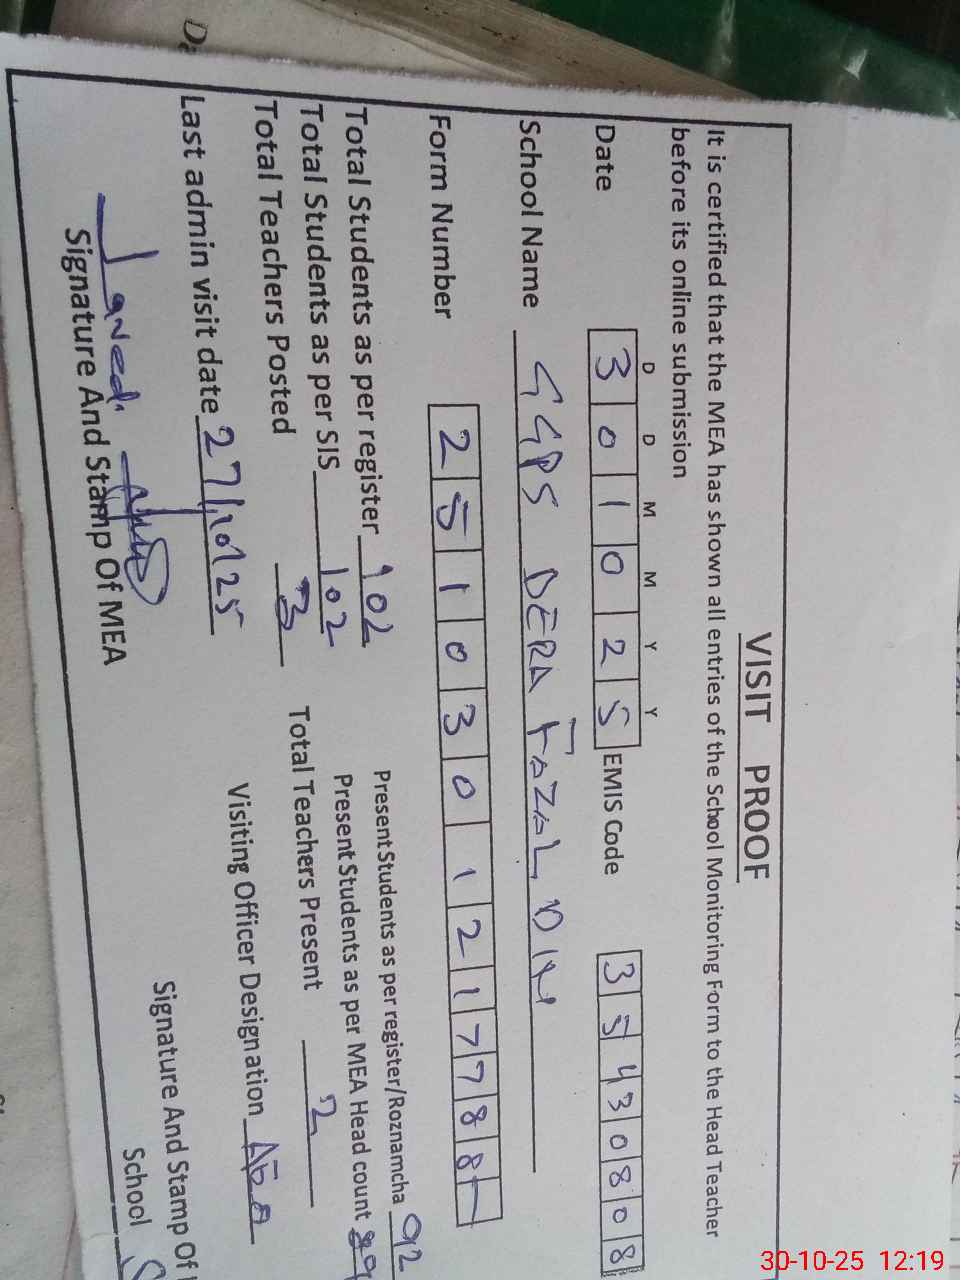 VISIT PROOF
It is certified that the MEA has shown all entries of the School Monitoring Form to the Head Teacher
before its online submission
D D M M Y Y
Date 3 0 1 0 2 5 EMIS Code 3 5 4 3 0 8 0 8
School Name GGPS DERA FAZAL DIN
Form Number 2 5 1 0 3 0 1 2 1 7 7 8 8
Total Students as per register 102 Present Students as per register/Roznamcha 92
Total Students as per SIS 102 Present Students as per MEA Head count 89
Total Teachers Posted 3 Total Teachers Present 2
Last admin visit date 27/10/25 Visiting Officer Designation AEO
Javed
Signature And Stamp Of MEA Signature And Stamp Of
School
30-10-25 12:19